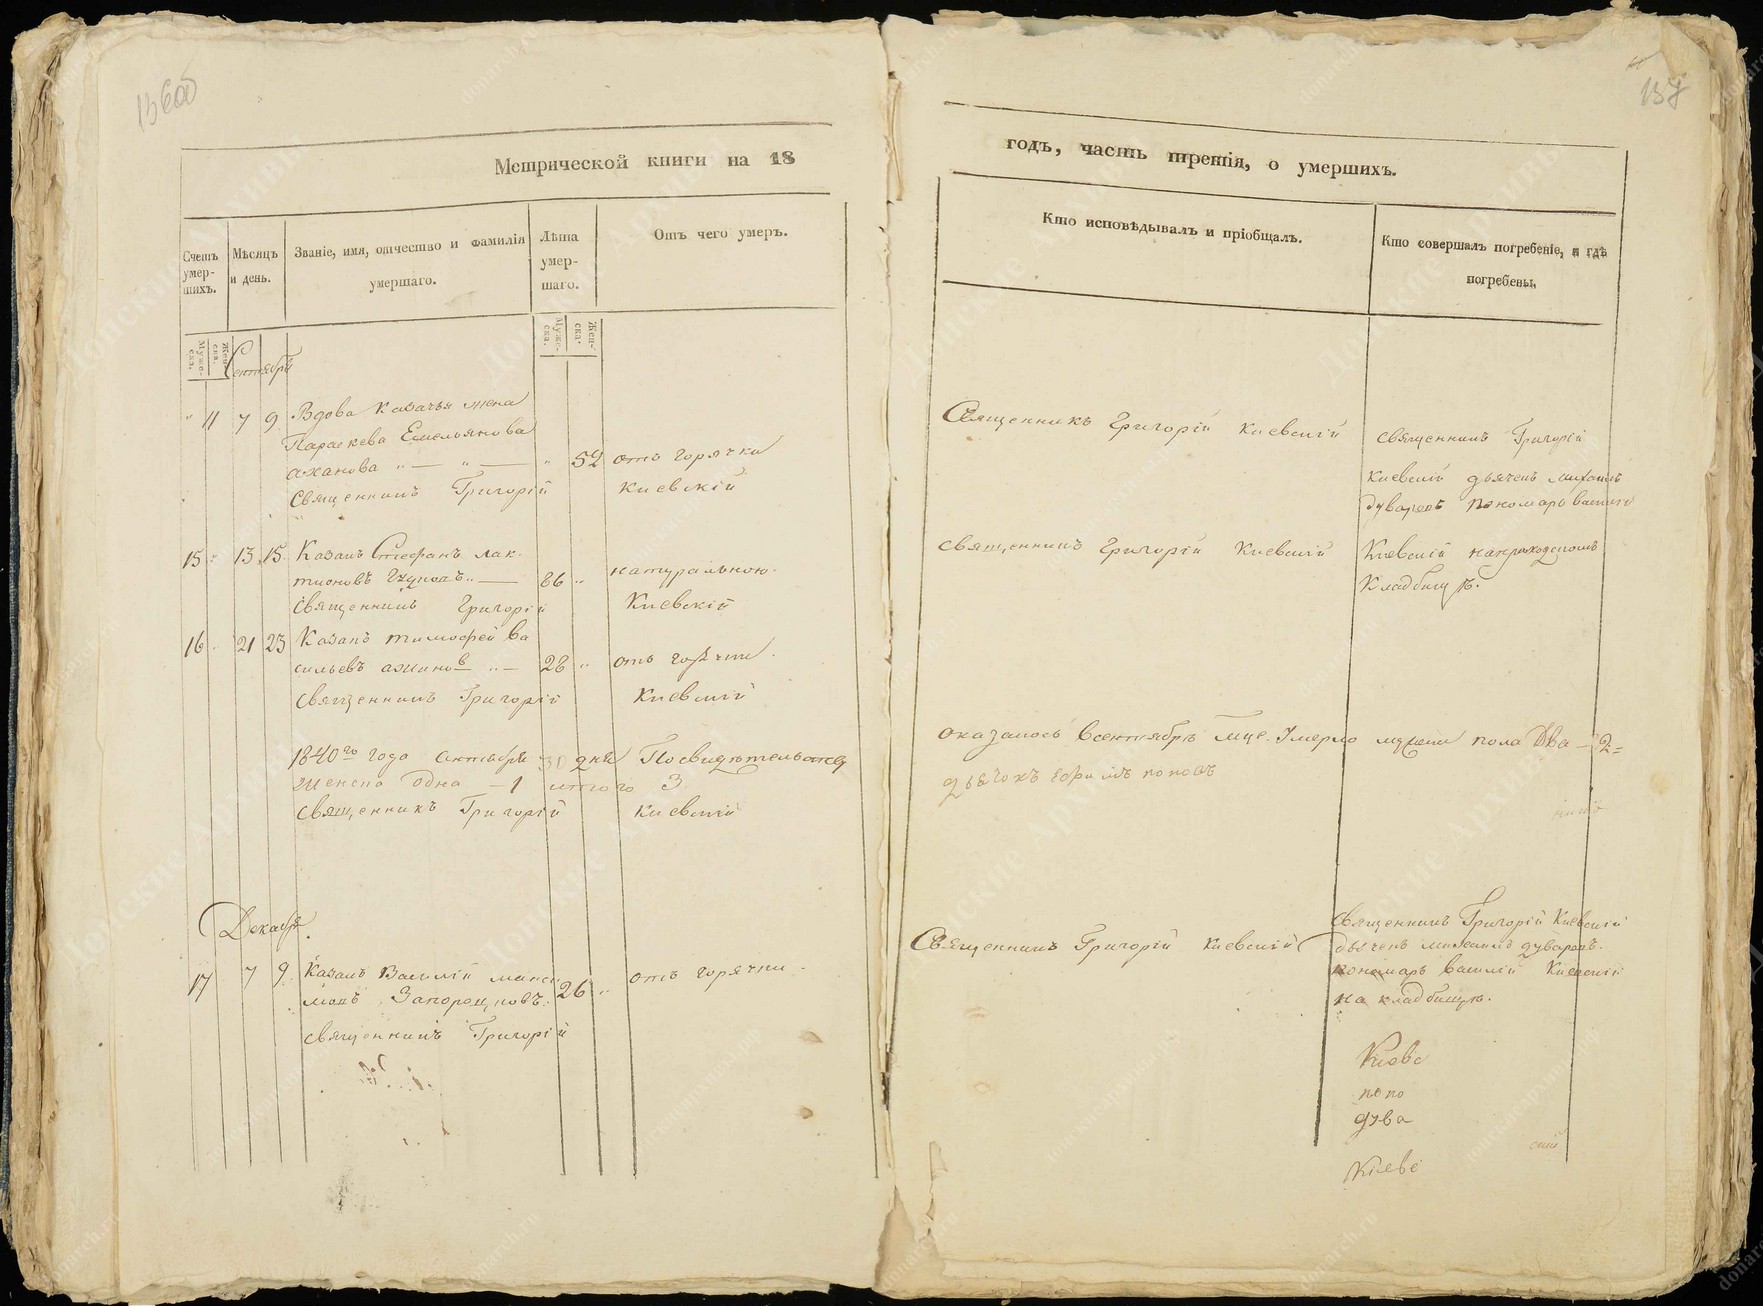 137
Метрической книги на 18
Счетъ умер-шихъ.
Мѣсяцъ и день.
Званіе, имя, отчество и фамилія умершаго.
Лѣта умер-шаго.
Отъ чего умеръ.
Муже-ска.
Жен-ска.
Муже-ска.
Жен-ска.
Сентябрь
" 11 7 9 Вдова казачья жена
Параскева Емельянова
" — " — " 52 отъ горячки
Священникъ Григорій Киевскій
15 " 13 15 Казакъ Стефанъ лак-
тионовъ " — 86 " натуральною.
Священникъ Григорій Киевскій
16 " 21 23 Казакъ тимофей ва
сильевъ " — 28 " отъ горячки.
Священникъ Григорій Киевскій
1840го года октября 30 дня По свидѣтельству
женска одна — 1 итого 3
Священникъ Григорій Киевскій
Декабрь.
17 7 9 Казакъ Василій макси
мовъ 26 " отъ горячки.
Священникъ Григорій
годъ, часть третія, о умершихъ.
Кто исповѣдывалъ и пріобщалъ.
Кто совершалъ погребеніе, и гдѣ погребены.
Священникъ Григорій Киевскій
священникъ Григорій
Киевскій дьячекъ
пономарь василій
священникъ Григорій Киевскій
Киевскій на приходскомъ
Кладбищѣ.
оказалось в сентябрѣ мце. Умерло мужеска пола Два — 2 =
дьячокъ поповъ
Священникъ Григорій Киевскій
Священникъ Григорій Киевскій
дьячекъ
пономарь василій Киевскій
на кладбищѣ.
Киевс
попо
дува
скій
Киевс